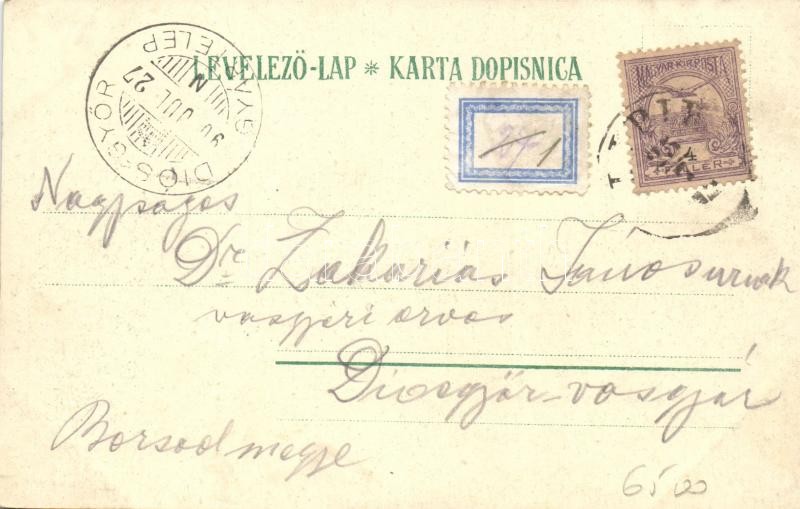 LEVELEZŐ-LAP * KARTA DOPISNICA
DIÓS-GYŐR GYÁRTELEP
90 JUL 27
N
MAGYAR KIR. POSTA
FILLER
27/1
Nagyságos
Dr Zakariás János urnak
vasgyári orvos
Diósgyőr-vasgyár
Borsod megye
6500